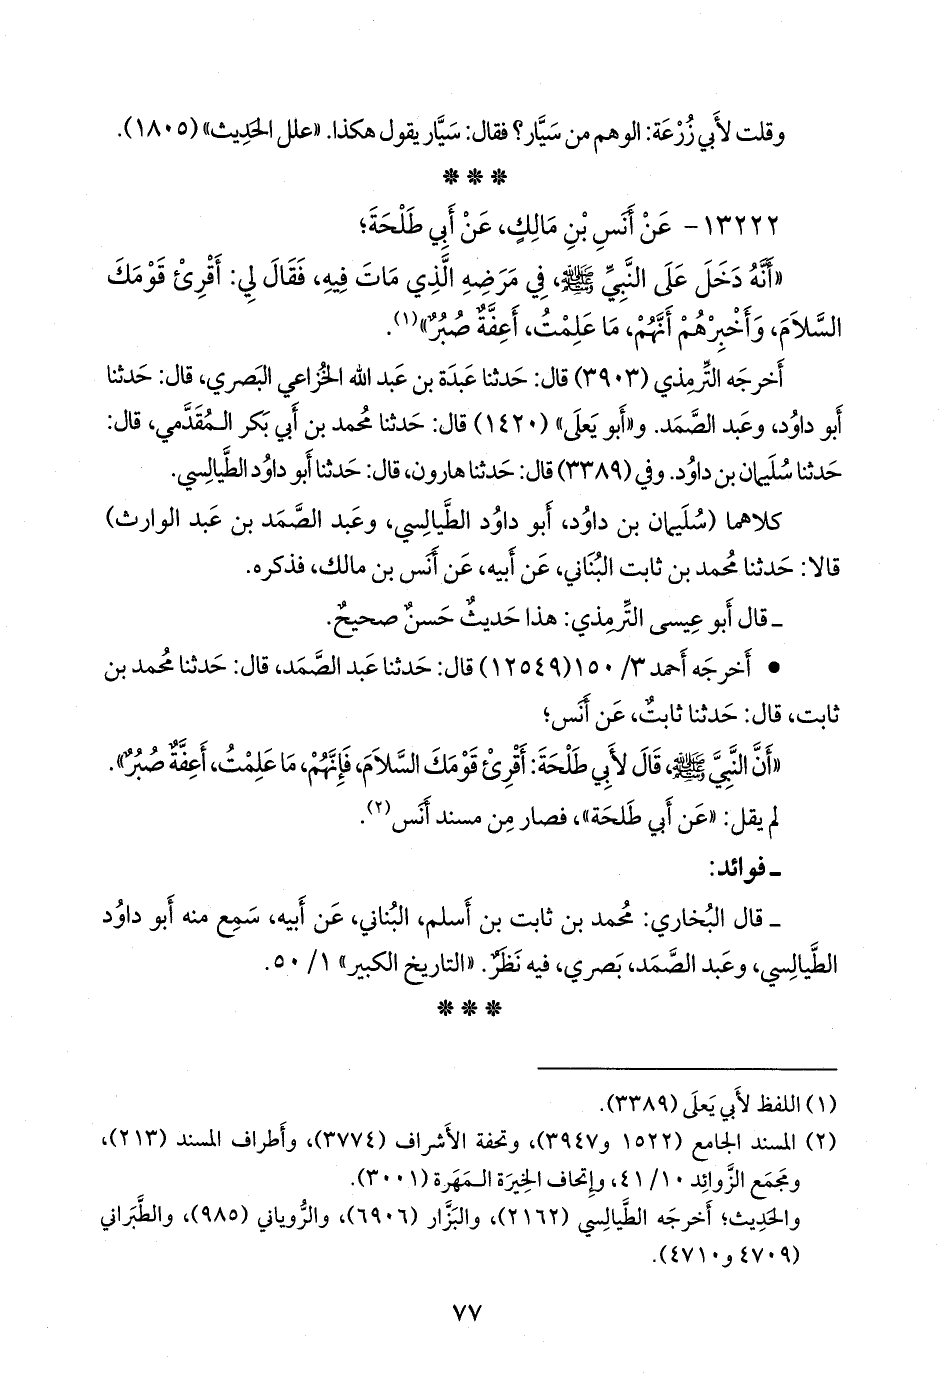 وقلت لأَبي زُرْعَة: الوهم من سَيَّار؟ فقال: سَيَّار يقول هكذا. «علل الحَدِيث» (١٨٠٥).
* * *
١٣٢٢٢- عَنْ أَنَسِ بْنِ مَالِكٍ، عَنْ أَبِي طَلْحَةَ؛
«أَنَّهُ دَخَلَ عَلَى النَّبِيِّ ﷺ، فِي مَرَضِهِ الَّذِي مَاتَ فِيهِ، فَقَالَ لِي: أَقْرِئْ قَوْمَكَ
السَّلاَمَ، وَأَخْبِرْهُمْ أَنَّهُمْ، مَا عَلِمْتُ، أَعِفَّةٌ صُبُرٌ»(١).
أَخرجَه التِّرمِذي (٣٩٠٣) قال: حَدثنا عَبدَة بن عَبد الله الخُزاعي البَصري، قال: حَدثنا
أَبو داوُد، وعَبد الصَّمَد. و«أَبو يَعلَى» (١٤٢٠) قال: حَدثنا مُحمد بن أَبي بَكر المُقَدَّمي، قال:
حَدثنا سُلَيمان بن داوُد. وفي (٣٣٨٩) قال: حَدثنا هارون، قال: حَدثنا أَبو داوُد الطَّيالِسي.
كلاهما (سُلَيمان بن داوُد، أَبو داوُد الطَّيالِسي، وعَبد الصَّمَد بن عَبد الوارث)
قالا: حَدثنا مُحمد بن ثابت البُنَاني، عَن أَبيه، عَن أَنَس بن مالك، فذكره.
ـ قال أَبو عِيسى التِّرمِذي: هذا حَديثٌ حَسنٌ صَحيحٌ.
• أَخرجَه أَحمد ٣/ ١٥٠ (١٢٥٤٩) قال: حَدثنا عَبد الصَّمَد، قال: حَدثنا مُحمد بن
ثابت، قال: حَدثنا ثابتٌ، عَن أَنَس؛
«أَنَّ النَّبِيَّ ﷺ، قَالَ لأَبِي طَلْحَةَ: أَقْرِئْ قَوْمَكَ السَّلاَمَ، فَإِنَّهُمْ، مَا عَلِمْتُ، أَعِفَّةٌ صُبُرٌ».
لم يقل: «عَن أَبي طَلحَة»، فصار مِن مسند أَنَس(٢).
ـ فوائد:
ـ قال البُخاري: مُحمد بن ثابت بن أَسلم، البُناني، عَن أَبيه، سَمِع منه أَبو داوُد
الطَّيالِسي، وعَبد الصَّمَد، بَصري، فيه نَظَرٌ. «التاريخ الكبير» ١/ ٥٠.
* * *
(١) اللفظ لأَبي يَعلَى (٣٣٨٩).
(٢) المسند الجامع (١٥٢٢ و٣٩٤٧)، وتحفة الأَشراف (٣٧٧٤)، وأَطراف المسند (٢١٣)،
ومَجمَع الزَّوائِد ١٠/ ٤١، وإِتحاف الخِيرَة المَهَرة (٣٠٠١).
والحَدِيث؛ أَخرجَه الطَّيالِسي (٢١٦٢)، والبَزَّار (٦٩٠٦)، والرُّوياني (٩٨٥)، والطَّبَراني
(٤٧٠٩ و٤٧١٠).
٧٧